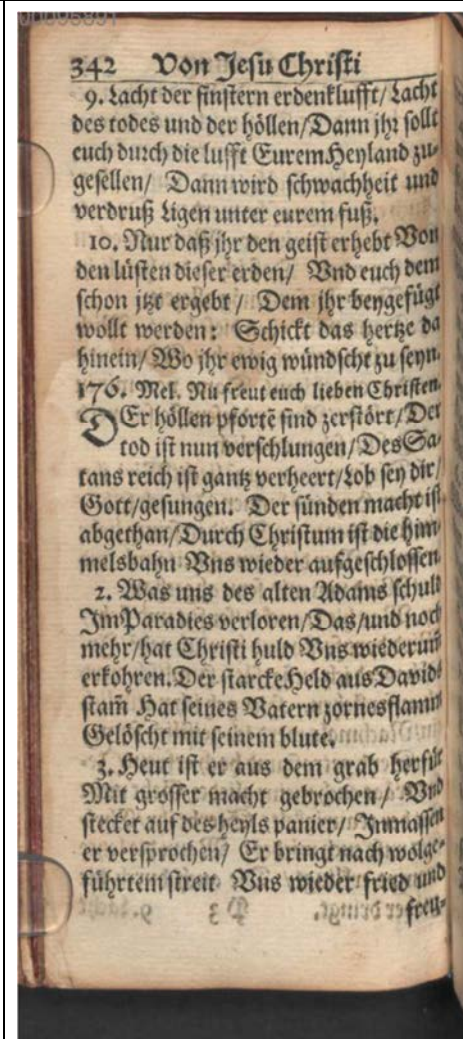 00095891
342 Von Jesu Christi
9. Lacht der finstern erdenklufft/ Lacht
des todes und der höllen/ Dann jhr sollt
euch durch die lufft Eurem Heyland zu-
gesellen/ Dann wird schwachheit und
verdruß Ligen unter eurem fuß.
10. Nur daß jhr den geist erhebt Von
den lüsten dieser erden/ Vnd euch dem
schon jtzt ergebt/ Dem jhr beygefügt
wollt werden: Schickt das hertze da
hinein/ Wo jhr ewig wündscht zu seyn.
176. Mel. Nu freut euch lieben Christen.
DEr höllen pfortē sind zerstört/ Der
tod ist nun verschlungen/ Des Sa-
tans reich ist gantz verheert/ Lob sey dir/
Gott/ gesungen. Der sünden macht ist
abgethan/ Durch Christum ist die him-
melsbahn Vns wieder aufgeschlossen.
2. Was uns des alten Adams schuld
Jm Paradies verloren/ Das/ und noch
mehr/ hat Christi huld Vns wiederum̄
erkohren. Der starcke Held aus Davids
stam̄ Hat seines Vatern zornesflamm
Gelöscht mit seinem blute.
3. Heut ist er aus dem grab herfür
Mit grosser macht gebrochen/ Vnd
stecket auf des heyls panier/ Jnmassen
er versprochen/ Er bringt nach wolge-
führtem streit Vns wieder fried und
freu-